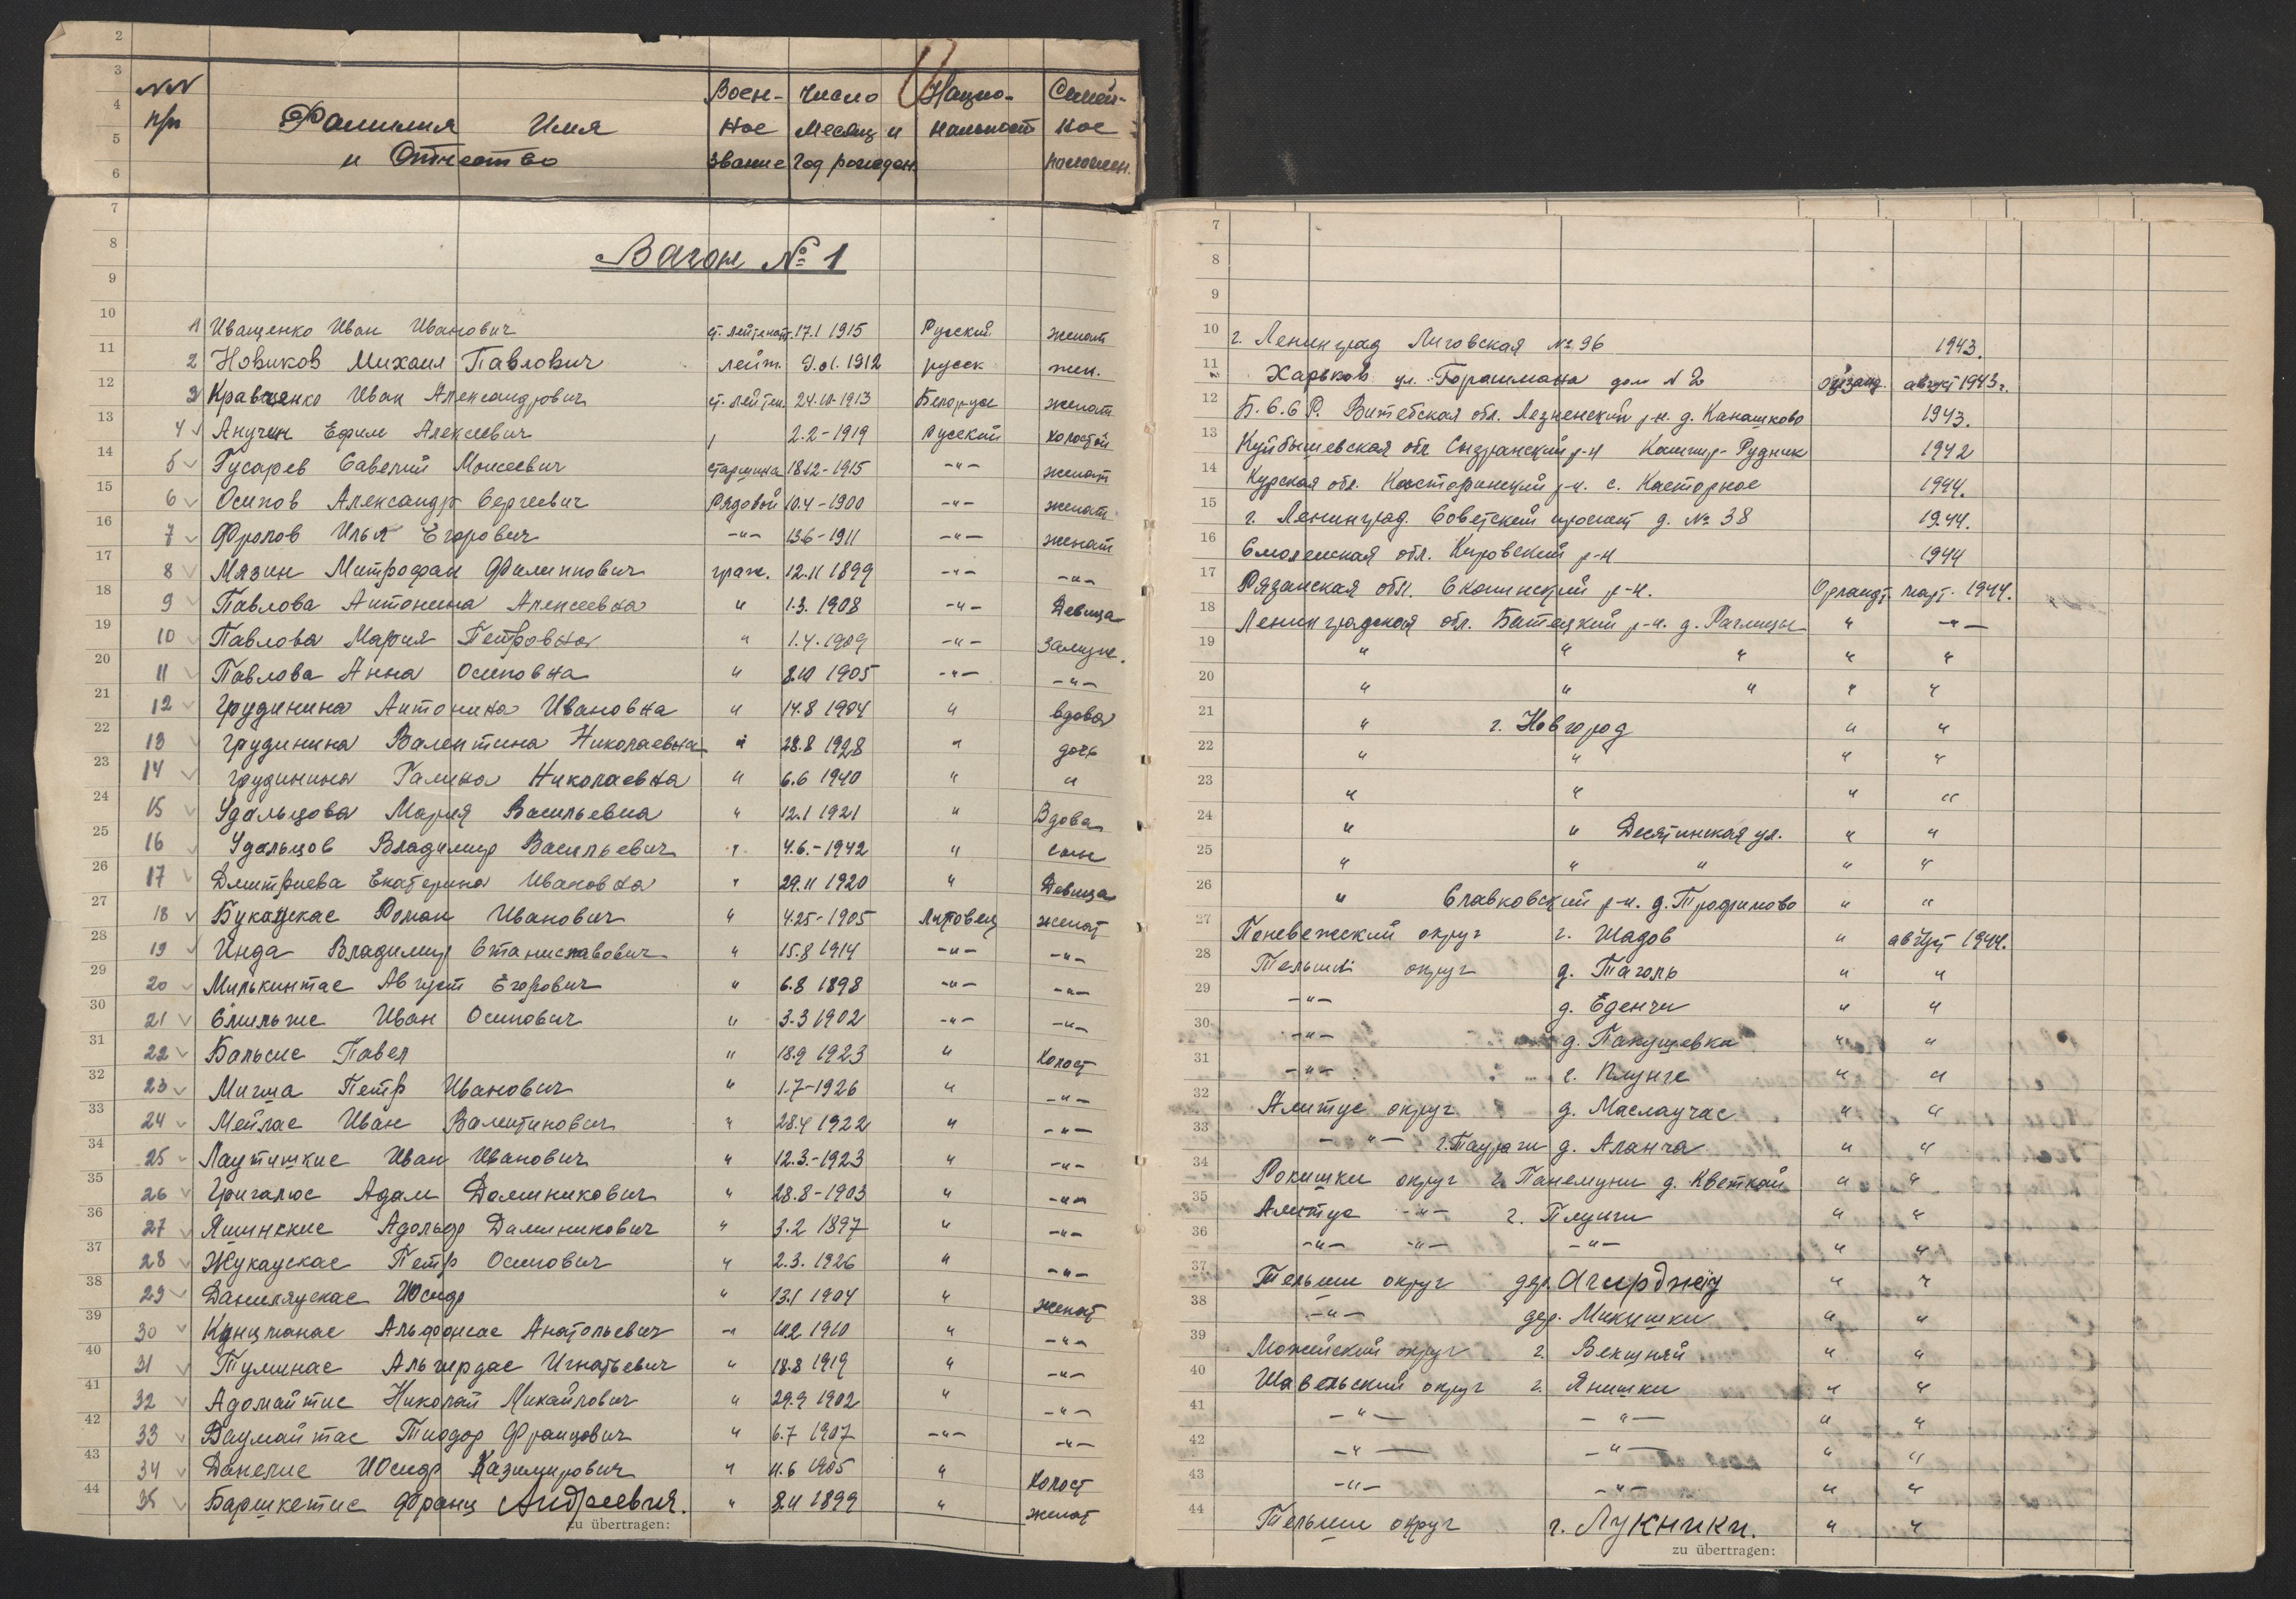 2
3
4
5
6
NN п/п
Фамилия Имя и Отчество
Воен- ное звание
Число месяц и год рожден.
Нацио- нальност
Семей- ное положен.
7
8
Вагон № 1
9
10 1 Иващенко Иван Иванович ст. лейтенант 17.1 1915 Русский женат
11 2 Новиков Михаил Павлович лейт. 9.01.1912 русск жен.
12 3 Кравченко Иван Александрович ст. лейтен. 24.10-1913 Белорус женат
13 4 Анучен Ефим Алексеевич 2.2-1919 Русский холостой
14 5 Гусарев Савелий Моисеевич старшина 18.12-1915 -"- женат
15 6 Осипов Александр Сергеевич Рядовой 10.4-1900 -"- женат
16 7 Фролов Илья Егорович -"- 13.6-1911 -"- женат
17 8 Мязин Митрофан Филиппович граж. 12.11 1899 -"- -"-
18 9 Павлова Антонина Алексеевна " 1.3. 1908 -"- Девица
19 10 Павлова Мария Петровна " 1.4.-1909 -"- Замужн.
20 11 Павлова Анна Осиповна " 8.10 1905 -"- -"-
21 12 Грудинина Антонина Ивановна " 14.8 1904 " вдова
22 13 Грудинина Валентина Николаевна " 28.8 1928 " дочь
23 14 Грудинина Галина Николаевна " 6.6 1940 " "
24 15 Удальцова Мария Васильевна " 12.1 1921 " Вдова
25 16 Удальцов Владимир Васильевич " 4.6.-1942 " сын
26 17 Дмитриева Екатерина Ивановна " 29.11 1920 " Девица
27 18 Букаускас Роман Иванович " 4.25-1905 Литовец женат
28 19 Инда Владимир Станиславович " 15.8 1914 -"- -"-
29 20 Милькинтас Август Егорович " 6.8 1898 -"- -"-
30 21 Смильгис Иван Осипович " 3.3 1902 -"- -"-
31 22 Бальсис Павел " 18.9 1923 " Холост
32 23 Мигла Петр Иванович " 1.7-1926 " -"-
33 24 Мейлас Иван Валитинович " 28.4 1922 " -"-
34 25 Лаутишкис Иван Иванович " 12.3.-1923 " -"-
35 26 Григалюс Адам Доминикович " 28.8-1903 " -"-
36 27 Яшинскис Адольф Даминикович " 3.2 1897 " -"-
37 28 Жукаускас Петр Осипович " 2.3. 1926 " -"-
38 29 Даниляускас Иосиф " 13.1 1904 " женат
39 30 Кунцманас Альфонсас Анатольевич " 10.2 1910 " -"-
40 31 Туминас Альгердас Игнатьевич " 18.8 1919 " -"-
41 32 Адомайтис Николай Михайлович " 29.9 1902 " -"-
42 33 Ваумайтас Тиодор Францович " 6.7 1907 -"- -"-
43 34 Данелис Иосиф Казимирович " 11.6 1905 " Холост
44 35 Баршкетис Франц Андреевич. " 8.11 1899 " женат
zu übertragen:
7
8
9
10 г. Ленинград Лиговская № 96 1943.
11 Харьков ул. Гораимана дом N 2 август 1943 г.
12 Б.С.С.Р. Витебская обл. Лезненский р-н. д. Канашково 1943.
13 Куйбышевская обл Сызранский р-н Кашпир-Рудник 1942
14 Курская обл. Касторинский р-н. с. Касторное 1944.
15 г. Ленинград. Советский проспект д. № 38 1944.
16 Смоленская обл. Кировский р-н 1944
17 Рязанская обл. Скопинский р-н. март. 1944.
18 Ленинградская обл. Батецкий р-н. д. Раглицы " -"-
19 " " " " "
20 " " " " "
21 " г. Новгород " "
22 " " " "
23 " " " "
24 " " Десятинская ул. " "
25 " " " " "
26 " Славковский р-н. д. Трофимово " "
27 Поневежский округ г. Шадов " август 1944.
28 Тельши округ д. Таголь " "
29 -"- д. Еденчи " "
30 -"- д. Пакушевка " "
31 -"- г. Плунге " "
32 Алитус округ д. Маслаучас " "
33 -"- г. Таураги д. Аланча " "
34 Рокишки округ г. Панемуни д. Кветкай " "
35 Алитус -"- г. Плунги " "
36 -"- -"- -"- " "
37 Тельши округ дер. Агирджяу " "
38 -"- дер. Микишки " "
39 Можейский округ г. Векшняй " "
40 Шавельский округ г. Янишки " "
41 -"- -"- " "
42 -"- -"- " "
43 -"- -"- " "
44 Тельши округ г. Лукники. " "
zu übertragen: